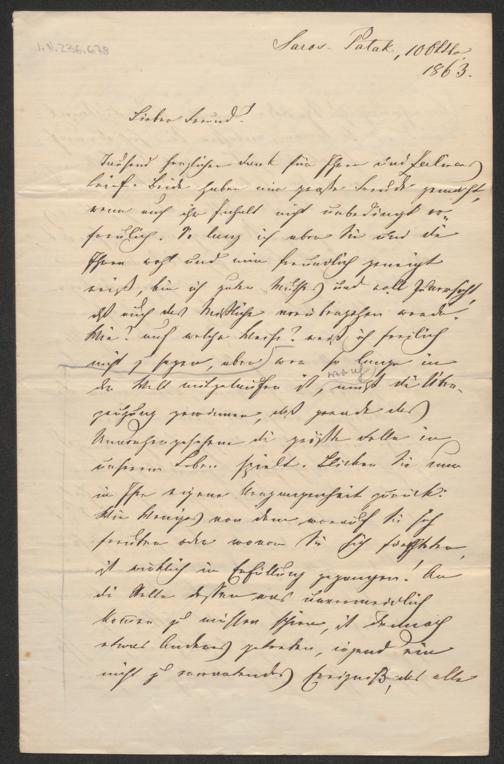 I.N. 236.678
Saros-Patak, 10 Oktb.
1863.
Lieber Freund!
Tausend herzlichen Dank für Ihren und
brief. Beide haben mir große Freude gemacht,
wenn auch ihr Inhalt nicht unbedingt er-
freulich. So lang ich aber Sie und die
Ihren wohl und mir freundlich geneigt
weiß, bin ich guten Muthes und voll Zuversicht,
daß auch das Mißliche vorübergehen werde.
Wie? auf welche Weise? weiß ich freilich
nicht z sagen, aber wer so lange in
der Welt mitgelaufen ist, muß die Über-
zeugung gewinnen, daß gerade das
Unvorhergesehene die größte Rolle in
unserem Leben spielt. Blicken Sie nun
in Ihre eigene Vergangenheit zurück:
Wie Weniges von dem worauf Sie sich
freuten oder wovor Sie sich fürchteten,
ist wirklich in Erfüllung gegangen! An
die Stelle dessen was unvermeidlich
kommen zu müssen schien, ist dennoch
etwas Anderes getreten, irgend ein
nicht zu erwartendes Ereigniß, das alle